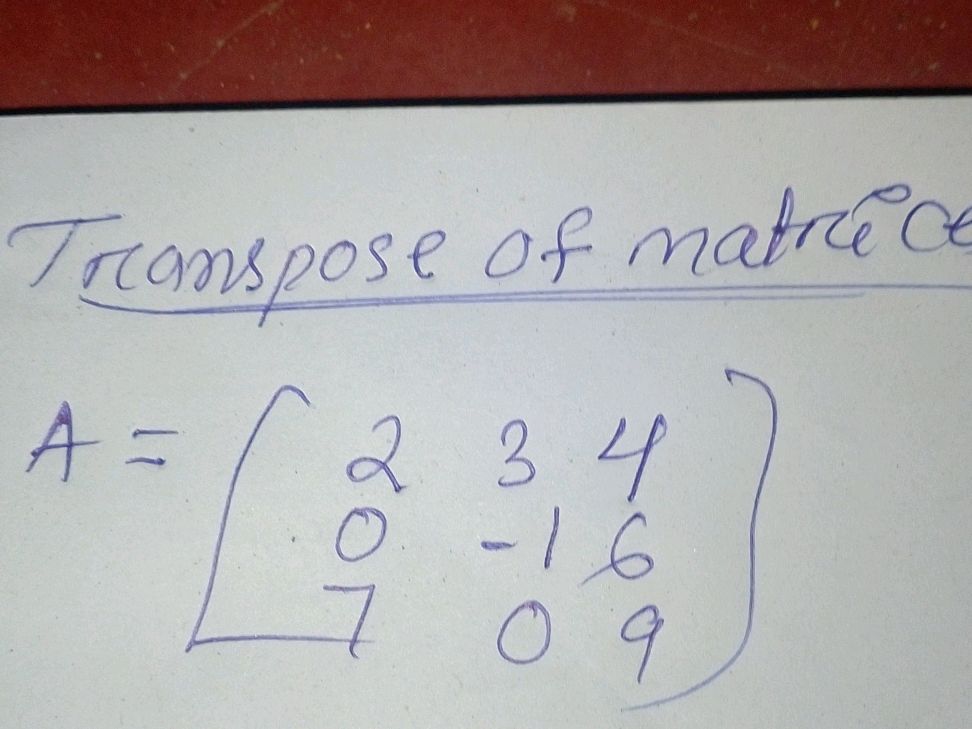 Transpose of matrice
A = [ 2 3 4
0 -1 6
7 0 9 )